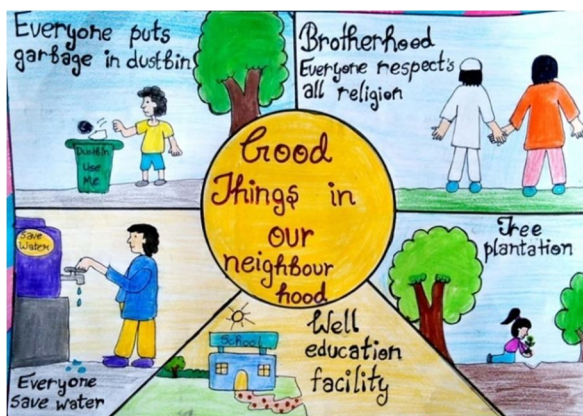 Everyone puts
garbage in dustbin
Dustbin
Use
Me
Brotherhood
Everyone respect's
all religion
Good
Things in
our
neighbour
hood
Save
Water
Everyone
save water
School
Well
education
facility
Tree
plantation